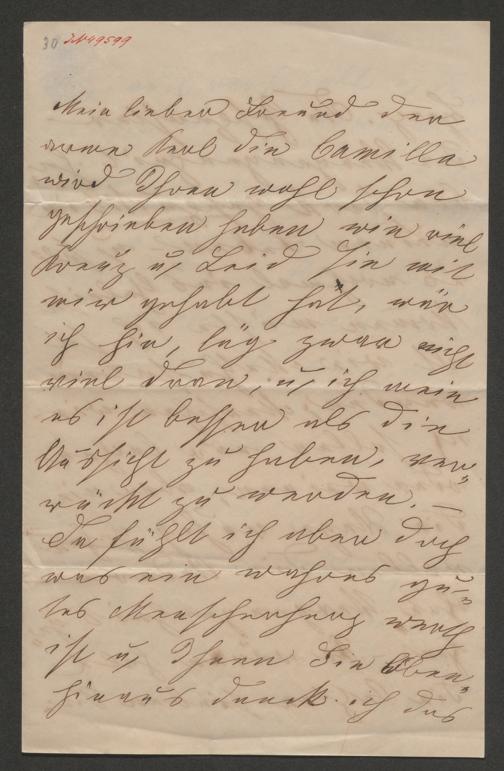 30 IN 49599
Mein lieber Freund der
arme Karl die Camilla
wird Ihnen wohl schon
geschrieben haben wie viel
Kreuz u, Leid sie mit
mir gehabt hat, wär
ich hin, läg zwar nicht
viel dran, u, ich mein
es ist besser als die
Aussicht zu haben, ver„
rückt zu werden. —
Da fühlt ich aber doch
was ein wahres gu„
tes Menschenherz werth
ist u, Ihnen Sie Oben„
hinaus dank ich das